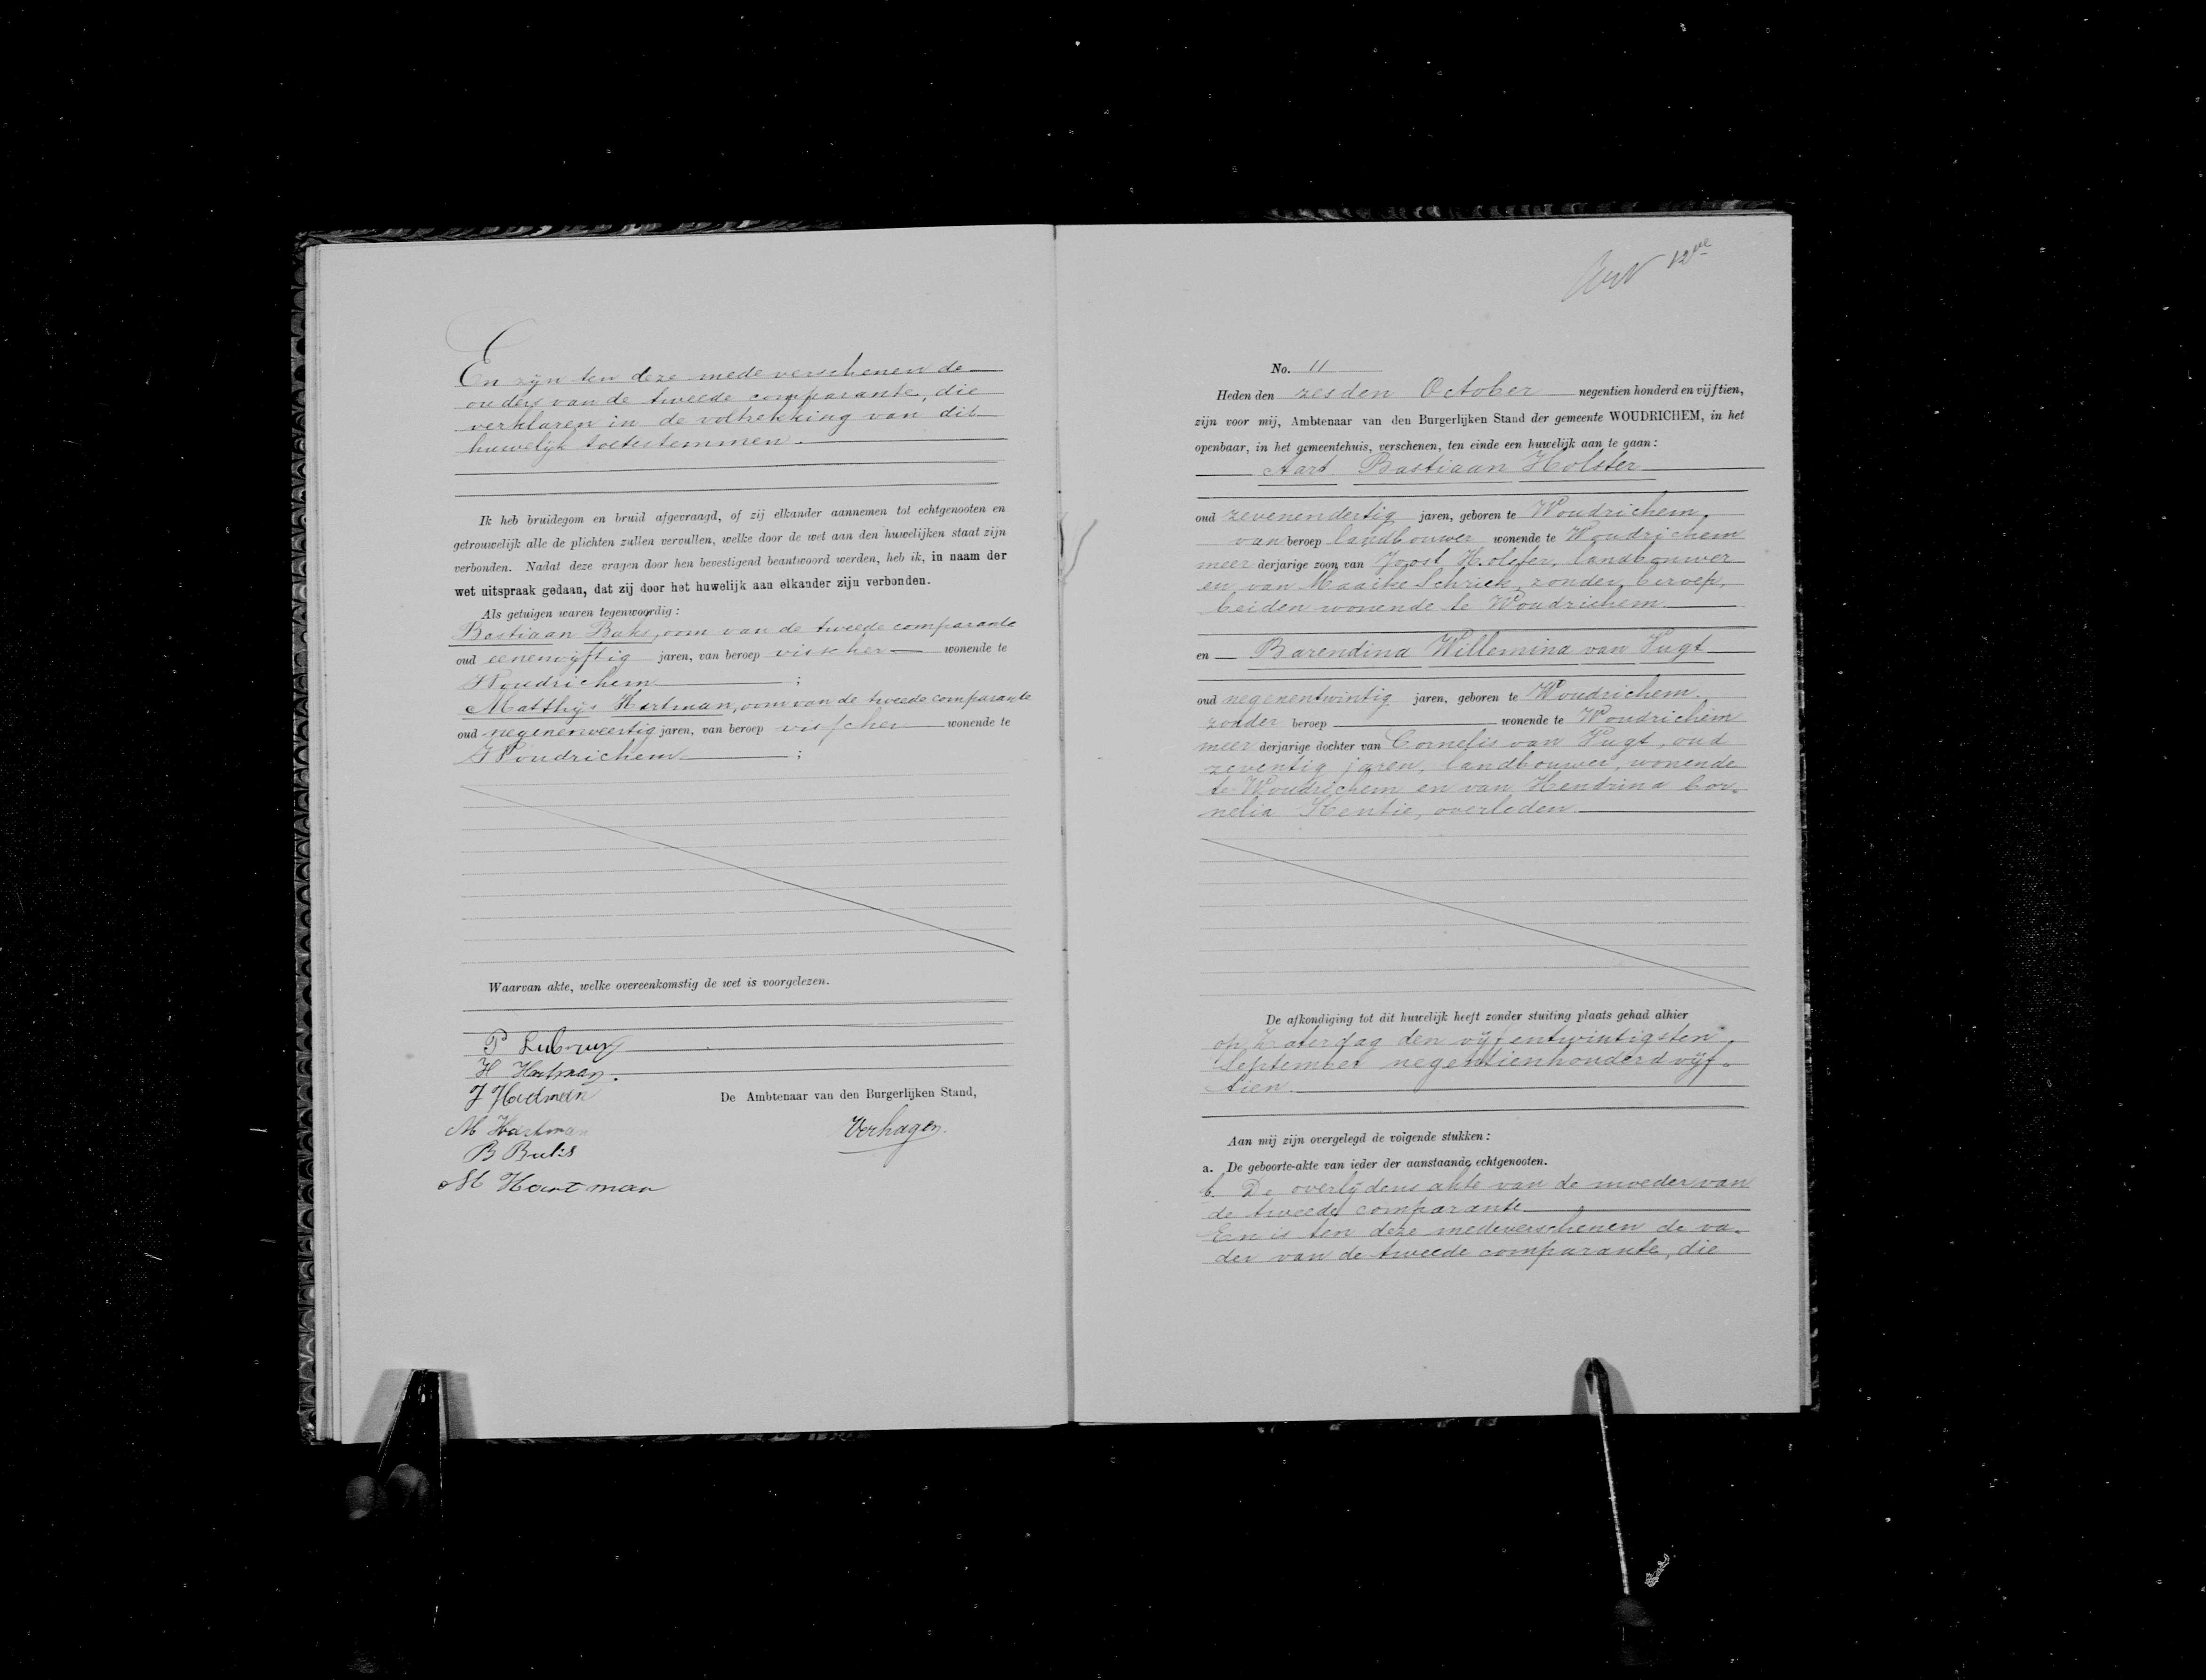 En zijn ten deze mede verschenen de
ouders van de tweede comparante, die
verklaren in de voltrekking van dit
huwelijk toetestemmen.
Ik heb bruidegom en bruid afgevraagd, of zij elkander aannemen tot echtgenooten en
getrouwelijk alle de plichten zullen vervullen, welke door de wet aan den huwelijken staat zijn
verbonden. Nadat deze vragen door hen bevestigend beantwoord werden, heb ik, in naam der
wet uitspraak gedaan, dat zij door het huwelijk aan elkander zijn verbonden.
Als getuigen waren tegenwoordig:
Bastiaan Baks, oom van de tweede comparante
oud eenenvijftig jaren, van beroep visscher wonende te
Woudrichem ;
Matthijs Hartman, oom van de tweede comparante
oud negenenveertig jaren, van beroep visscher wonende te
Woudrichem ;
Waarvan akte, welke overeenkomstig de wet is voorgelezen.
P
H Hartman.
J Hartman
De Ambtenaar van den Burgerlijken Stand,
M Hartman
Verhagen.
B
M Hartman
12de
No. 11
Heden den zesden October negentien honderd en vijftien,
zijn voor mij, Ambtenaar van den Burgerlijken Stand der gemeente WOUDRICHEM, in het
openbaar, in het gemeentehuis, verschenen, ten einde een huwelijk aan te gaan:
Aart Bastiaan Holster
oud zevenendertig jaren, geboren te Woudrichem,
van beroep landbouwer wonende te Woudrichem
meer derjarige zoon van Joost Holster, landbouwer
en van Maaike Schriek, zonder beroep,
beiden wonende te Woudrichem.
en Barendina Willemina van Vugt
oud negenentwintig jaren, geboren te Woudrichem,
zonder beroep wonende te Woudrichem
meer derjarige dochter van Cornelis van Vugt, oud
zeventig jaren, landbouwer, wonende
te Woudrichem en van Hendrina Cor-
nelia Kentie, overleden
De afkondiging tot dit huwelijk heeft zonder stuiting plaats gehad alhier
op Zaterdag den vijfentwintigsten
September negentienhonderd vijf-
tien.
Aan mij zijn overgelegd de volgende stukken:
a. De geboorte-akte van ieder der aanstaande echtgenooten.
b. De overlijdens akte van de moeder van
de tweede comparante
En is ten deze medeverschenen de va-
der van de tweede comparante, die